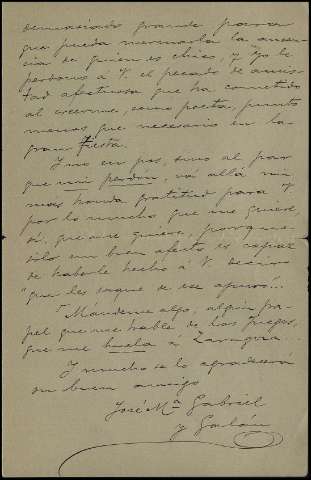 demasiado grande para
que pueda mermarla la ausen-
cia de quien es chico, y yo le
perdono á V. el pecado de amis-
tad afectuosa que ha cometido
al creerme, como poeta, punto
menos que necesario en la
gran fiesta.
Y no en pos, sino al par
que mi perdón, vá allá mi
más honda gratitud para V.
por lo mucho que me quiere,
sí, que me quiere, porque
sólo un buen afecto es capaz
de haberle hecho á V. decirme
"que les saque de ese apuro"...
Mándeme algo, algún pa-
pel que me hable de los Juegos,
que me huela á Zaragoza...
Y mucho se lo agradecerá
su buen amigo
José Mª Gabriel
y Galán